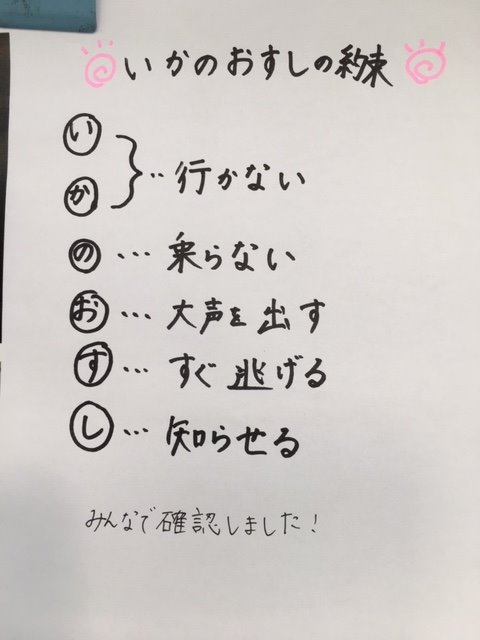 いかのおすしの約束
い
か
‥行かない
の…乗らない
お…大声を出す
す…すぐ逃げる
し…知らせる
みんなで確認しました！